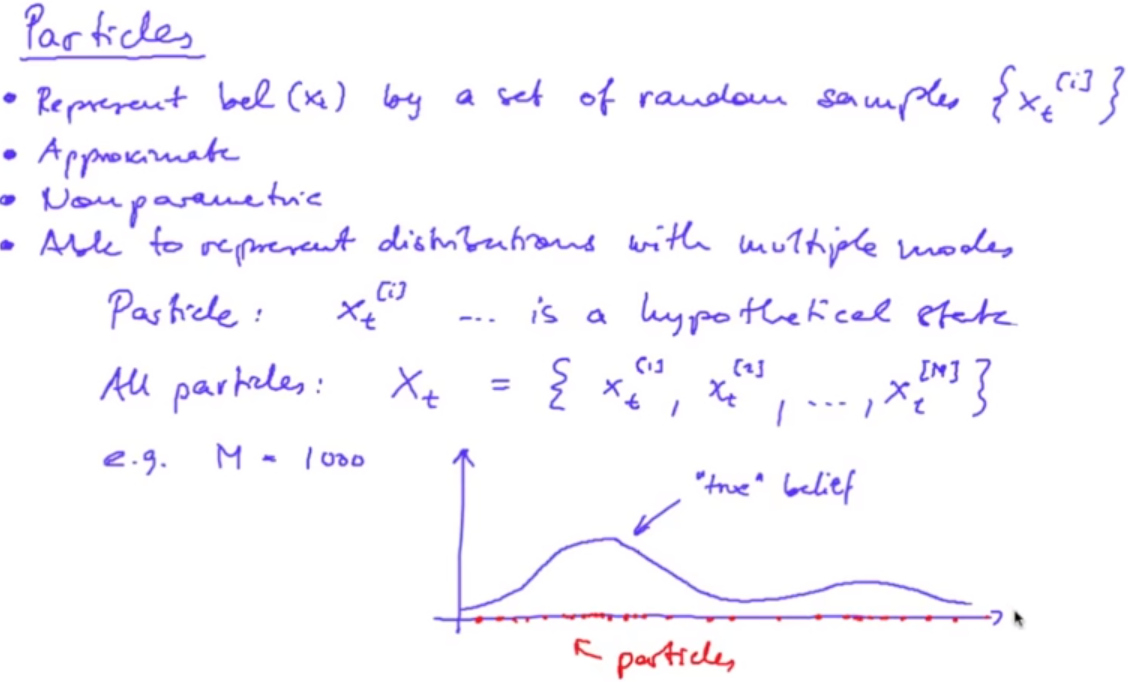 Particles
• Represent bel(xₜ) by a set of random samples {xₜ^[i]}
• Approximate
• Nonparametric
• Able to represent distributions with multiple modes
Particle: xₜ^[i] ... is a hypothetical state
All particles: Xₜ = { xₜ^[1], xₜ^[2], ..., xₜ^[M] }
e.g. M = 1000
"true" belief
particles